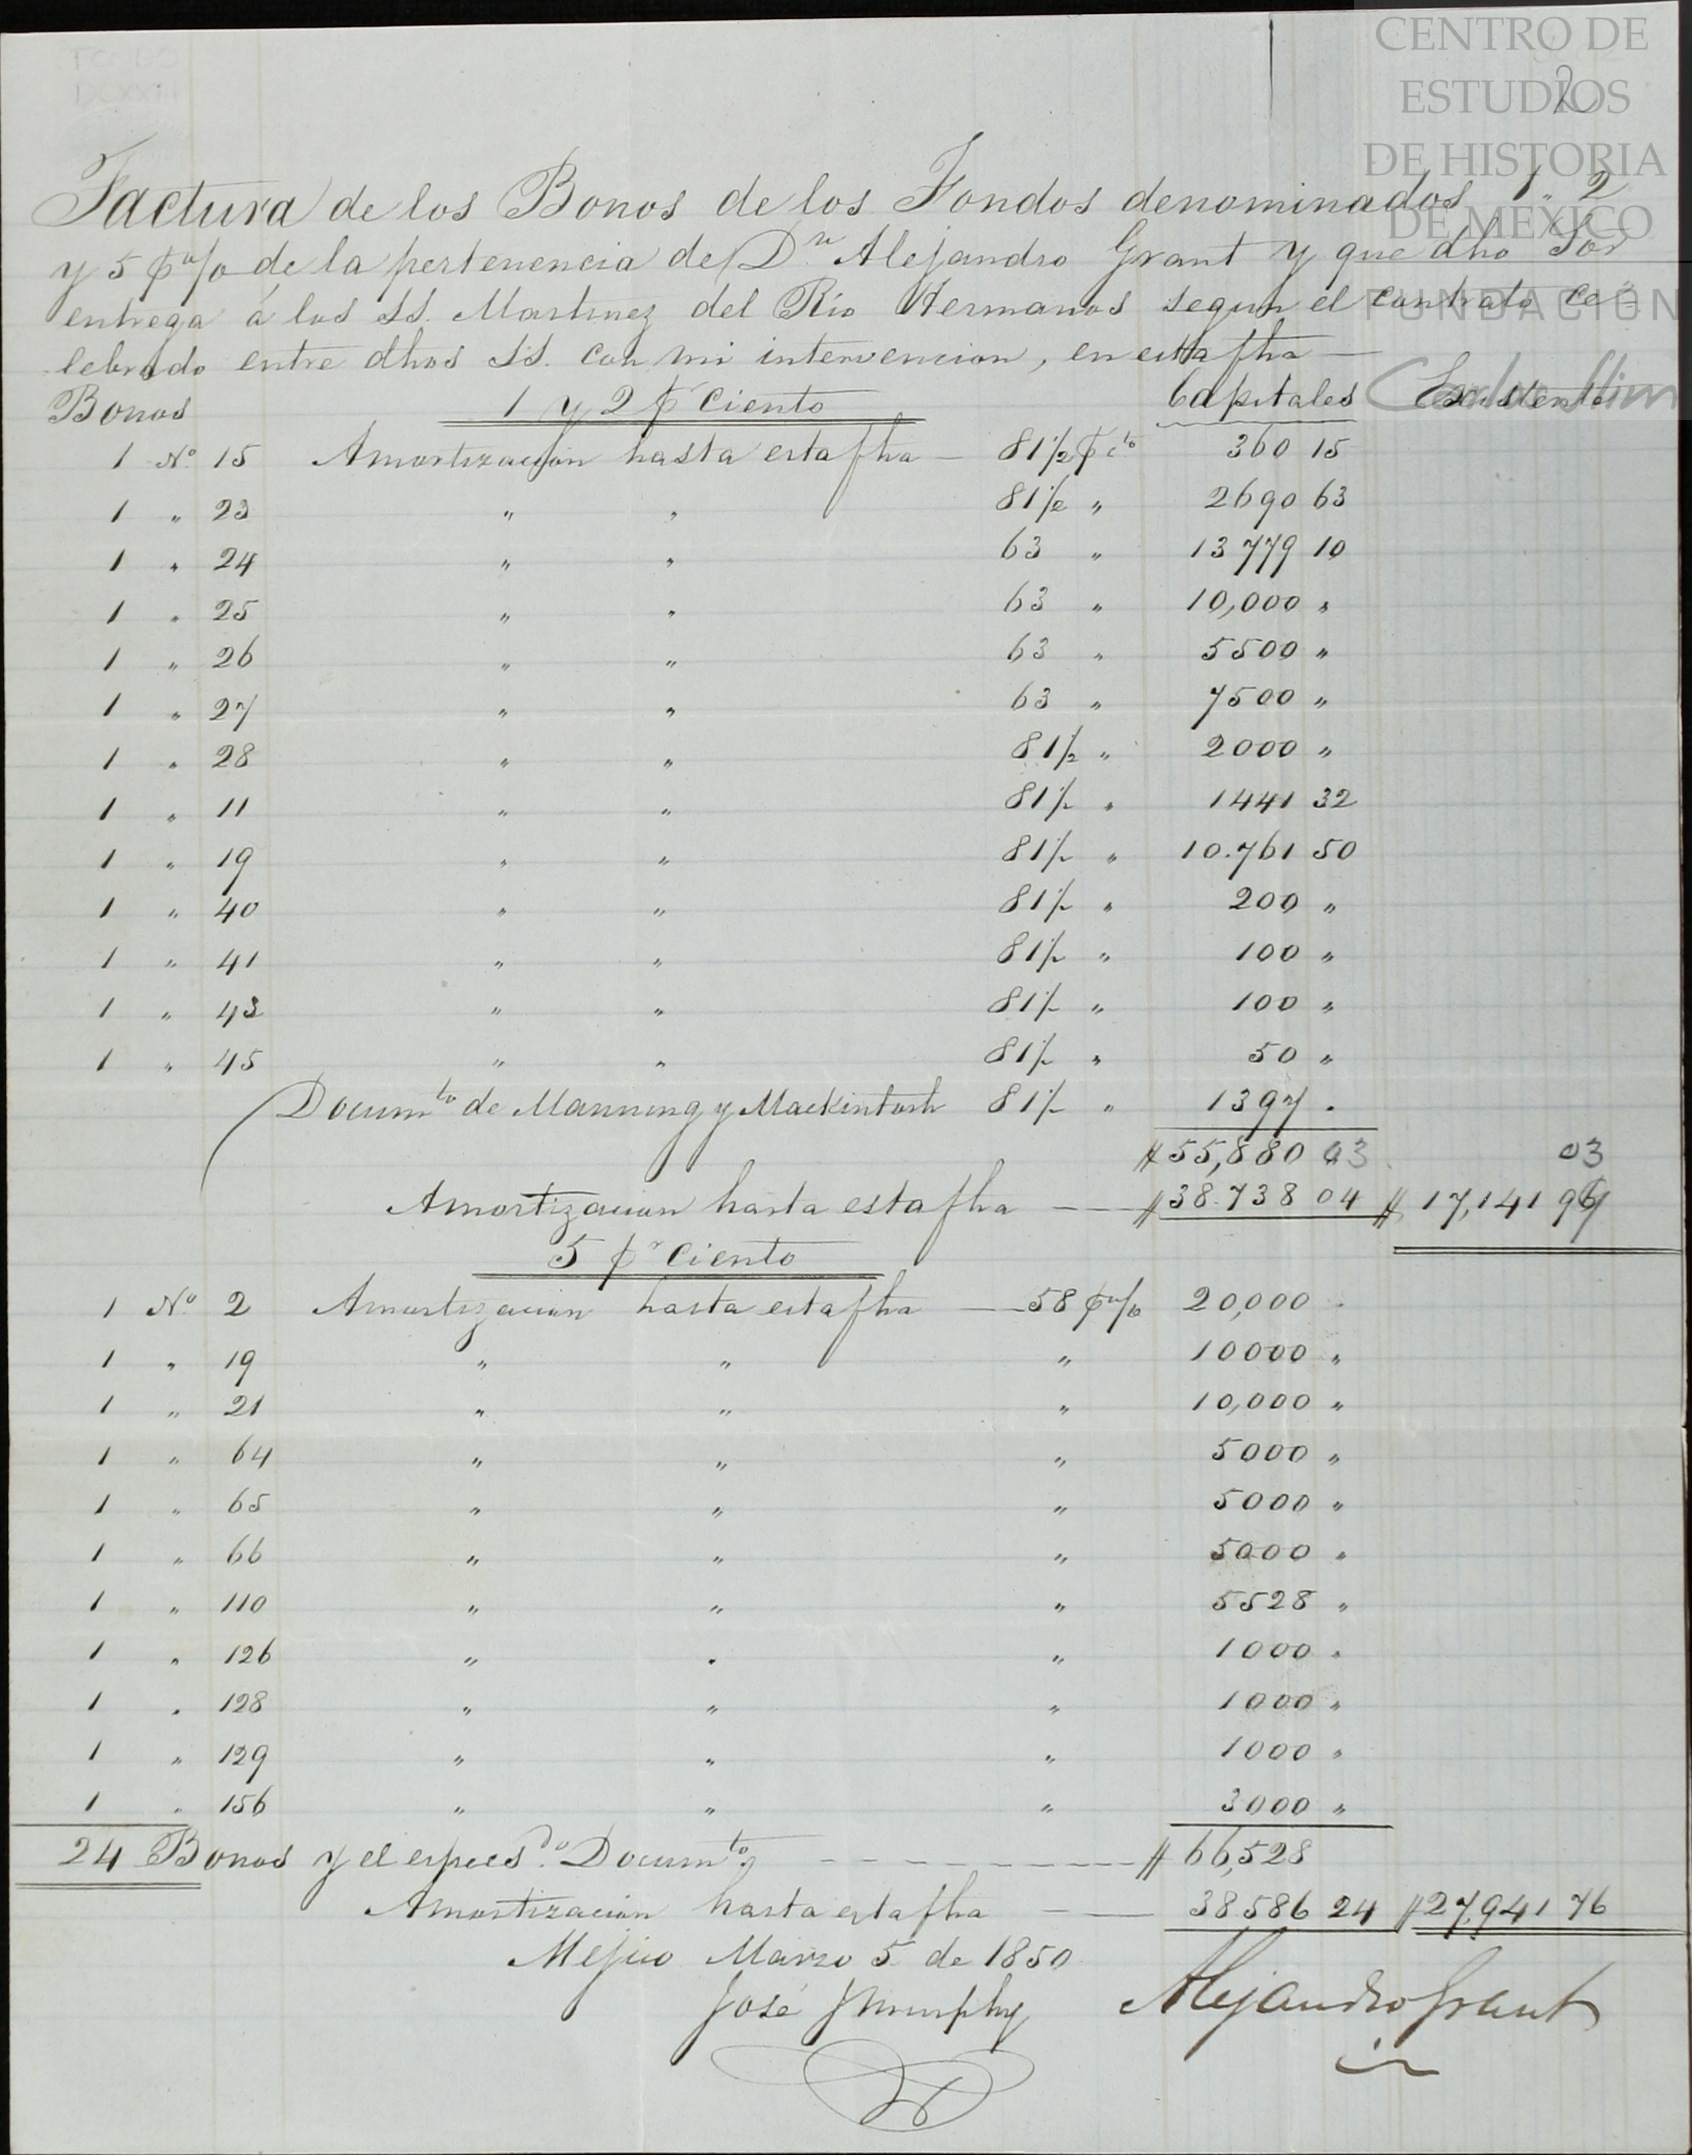 CENTRO DE
ESTUDIOS
DE HISTORIA
DE MÉXICO
FUNDACIÓN
Carlos Slim
2
Factura de los Bonos de los Fondos denominados 1. 2
y 5 p% de la pertenencia de Dn Alejandro Grant y que dho Sor
entrega á los SS. Martinez del Rio Hermanos segun el contrato ce-
lebrado entre dhos SS. con mi intervencion, en esta fha —
Bonos 1 y 2 pr Ciento Capitales Existente
1 No. 15 Amortizacion hasta esta fha — 81 1/2 p cto 360 15
1 " 23 " " 81 1/2 " 2690 63
1 " 24 " " 63 " 13779 10
1 " 25 " " 63 " 10,000 "
1 " 26 " " 63 " 5500 "
1 " 27 " " 63 " 7500 "
1 " 28 " " 81 1/2 " 2000 "
1 " 11 " " 81 1/2 " 1441 32
1 " 19 " " 81 1/2 " 10.761 50
1 " 40 " " 81 1/2 " 200 "
1 " 41 " " 81 1/2 " 100 "
1 " 43 " " 81 1/2 " 100 "
1 " 45 " " 81 1/2 " 50 "
Documto de Manning y Mackintosh 81 1/2 " 1397 .
$55,880 03 03
Amortizacion hasta esta fha — $38.738 04 $17,141
5 pr Ciento
1 No. 2 Amortizacion hasta esta fha — 58 p% 20,000 .
1 " 19 " " " 10000 "
1 " 21 " " " 10,000 "
1 " 64 " " " 5000 "
1 " 65 " " " 5000 "
1 " 66 " " " 5000 "
1 " 110 " " " 5528 "
1 " 126 " " " 1000 "
1 " 128 " " " 1000 "
1 " 129 " " " 1000 "
1 " 156 " " " 3000 "
24 Bonos y el expresdo. Documto — $66,528
Amortizacion hasta esta fha — 38.586 24 $27,941 76
Mejico Marzo 5 de 1850
José J Murphy Alejandro Grant